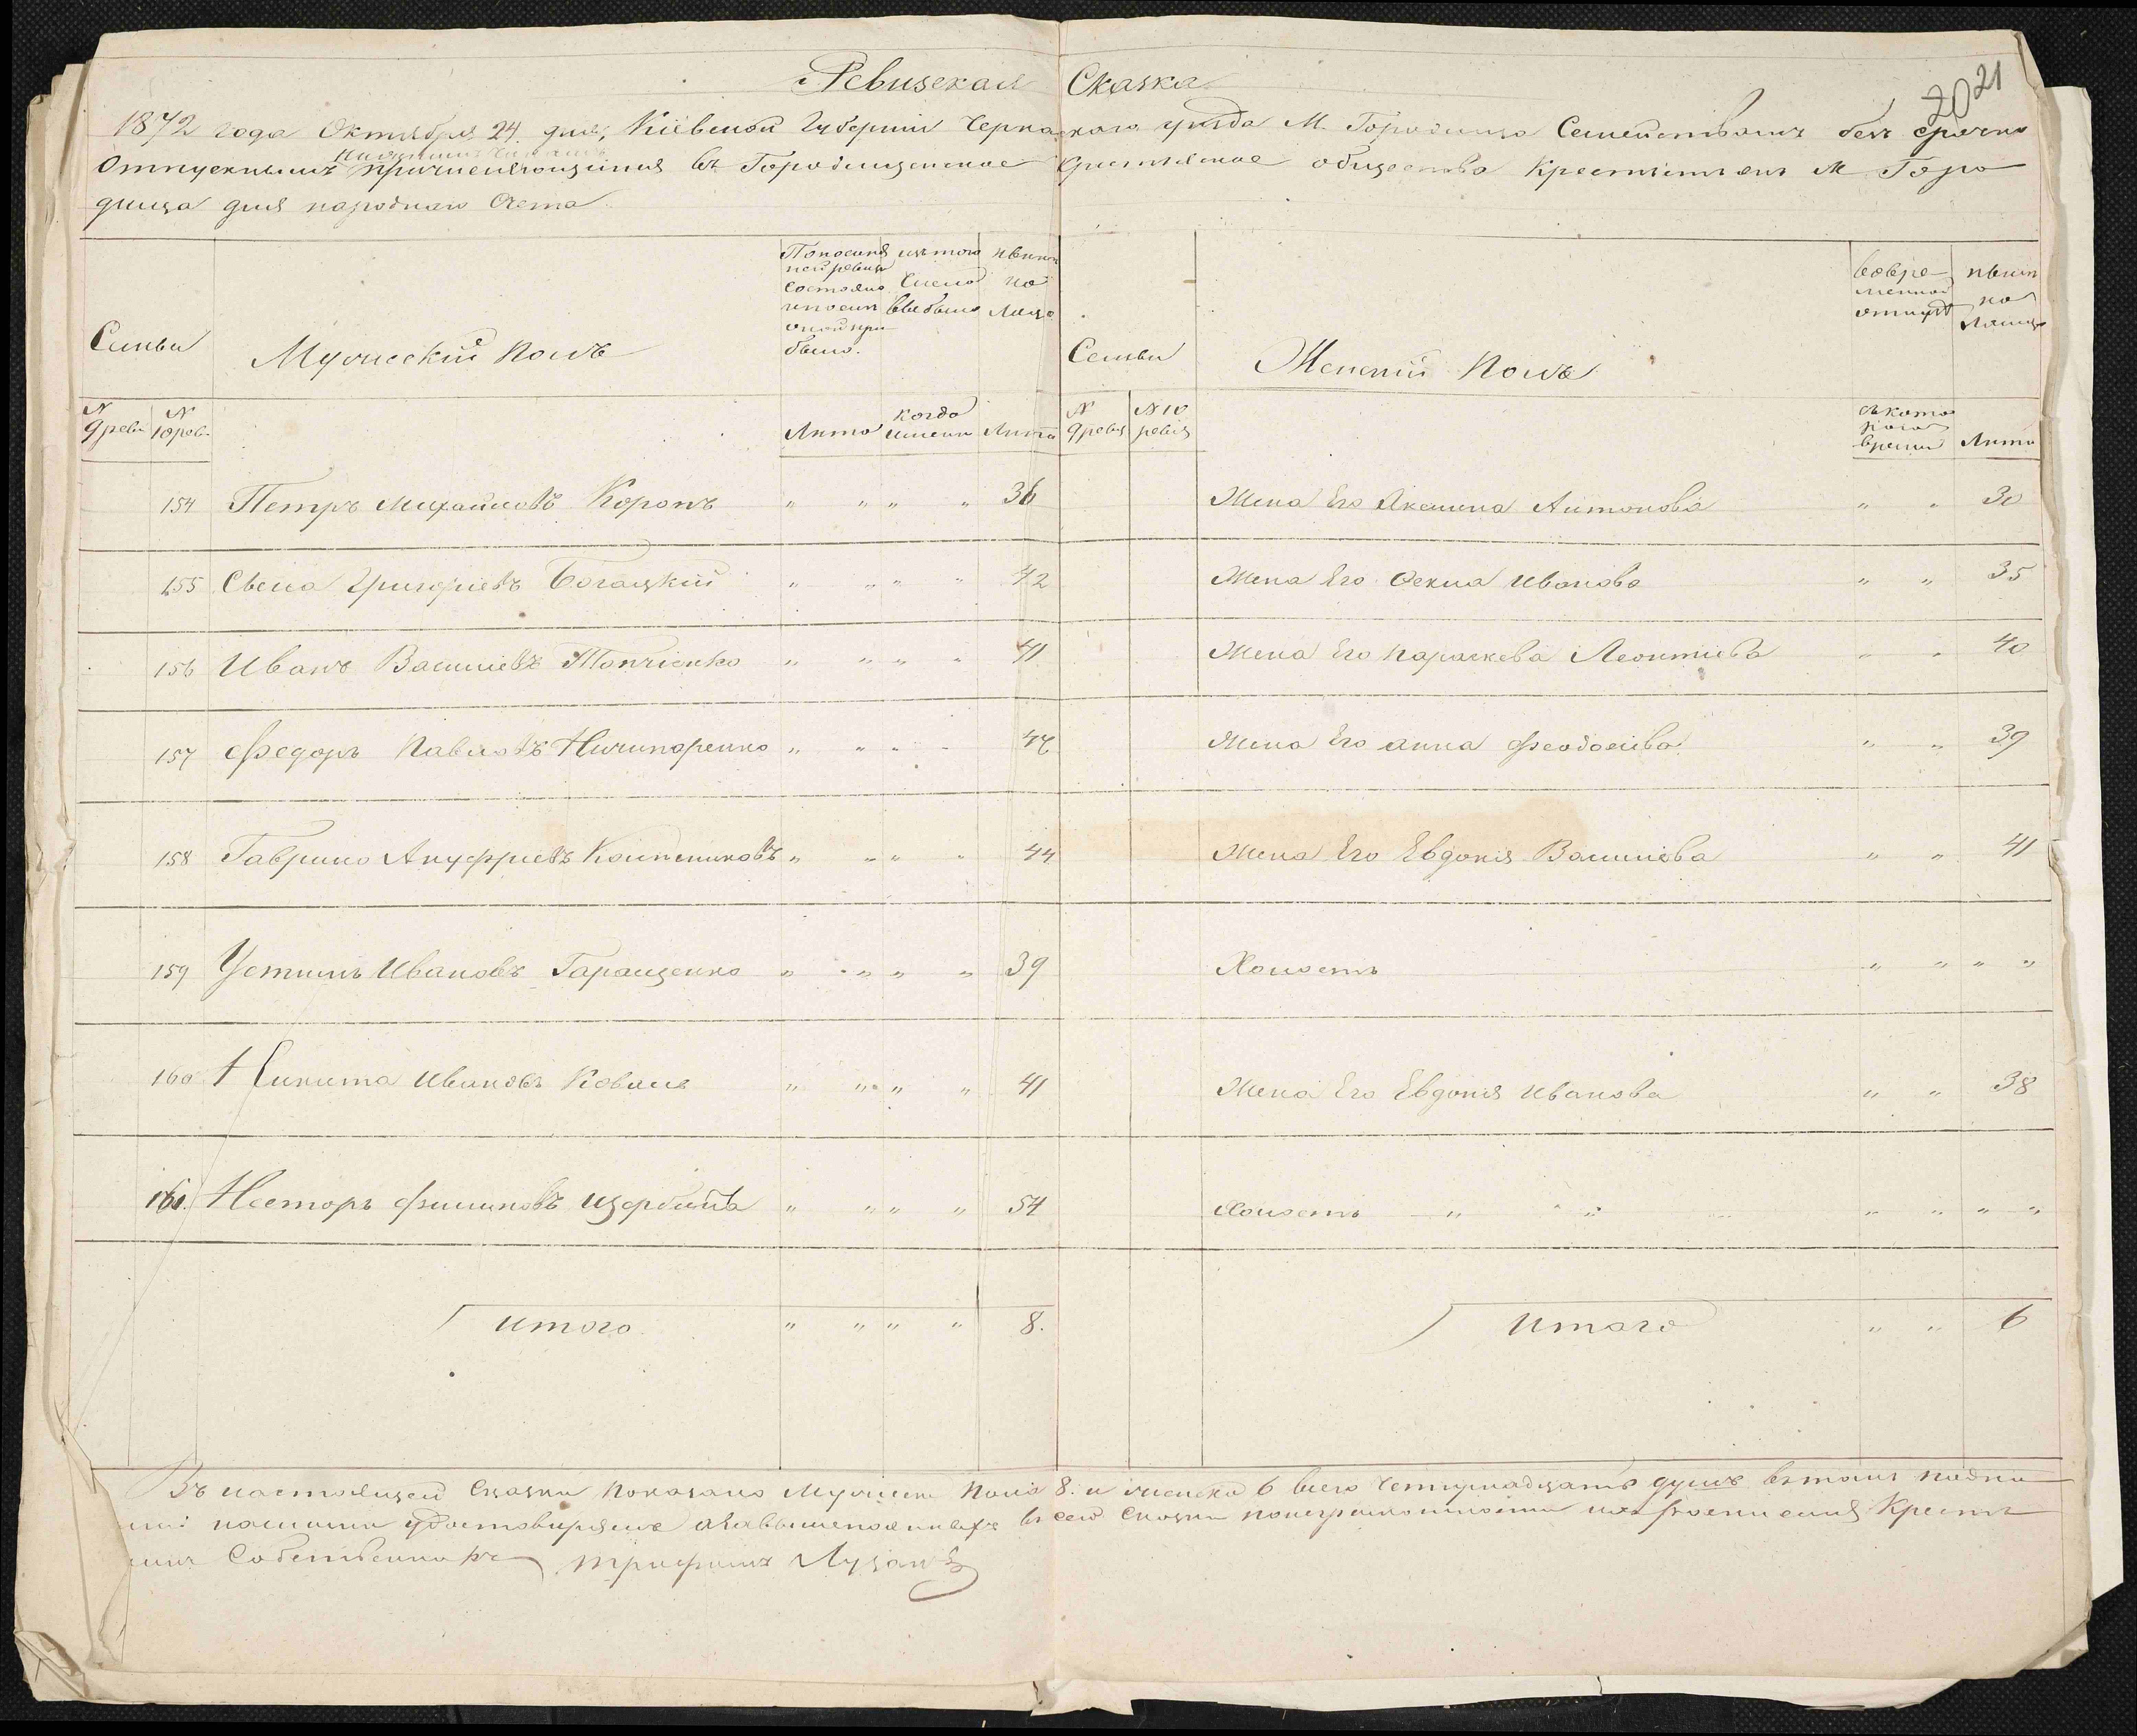 20 21
Ревизская Сказка
1872 года Октября 24 дня, Кіевской Губерніи Черкаскаго уѣзда М. Городища Семействамъ без срочно
Отпускнымъ причисляющимся въ Городищенское Крестьянское общество Крестьянъ М Горо
дища для народнаго Счета
Семьи
Мужескій полъ
По послед
ней ревизіи
состояло
и после
оной при
было.
изъ того
Числа
выбыло
нынѣ
на
лицо
Семьи
Женскій полъ
во вре
менной
отлучкѣ
нынѣ
на
лицо
N 9 реви
N 10 реви
Лѣта
когда
именно
Лѣта
N 9 ревиз
N 10 ревиз
съ кото
раго
времени
Лѣта
154 Петръ Михайловъ Коропъ " " " " 36 Жена Его Аксинна Антонова " " 30
155 Григоріевъ Богацкій " " " " 42 Жена Его Фекла Иванова " " 35
156 Иванъ Василіевъ Топчіенко " " " " 41 Жена Его Параскева Леонтіева " " 40
157 Федоръ Павловъ Ничипоренко " " " " Жена Его Анна Феодосіева " " 39
158 Гаврило Ануфріевъ " " " " 44 Жена Его Евдокія Василіева " " 41
159 Устимъ Ивановъ Гаращенко " " " " 39 Холостъ " " " "
160 Никита Ивановъ Коваль " " " " 41 Жена Его Евдокія Иванова " " 38
161. Несторъ Филиповъ Щербина " " " " 54 Холостъ " " " " " "
Итого " " " " 8. Итого " " 6
Въ настоящей Сказки Показано Мужеска Пола 8. и женска 6 всего Четырнадцать душъ въ томъ подпи
нашими удостовѣряемъ въ сей сказки по неграмотности ихъ Крестья
Собственникъ Трифонъ Лузанъ